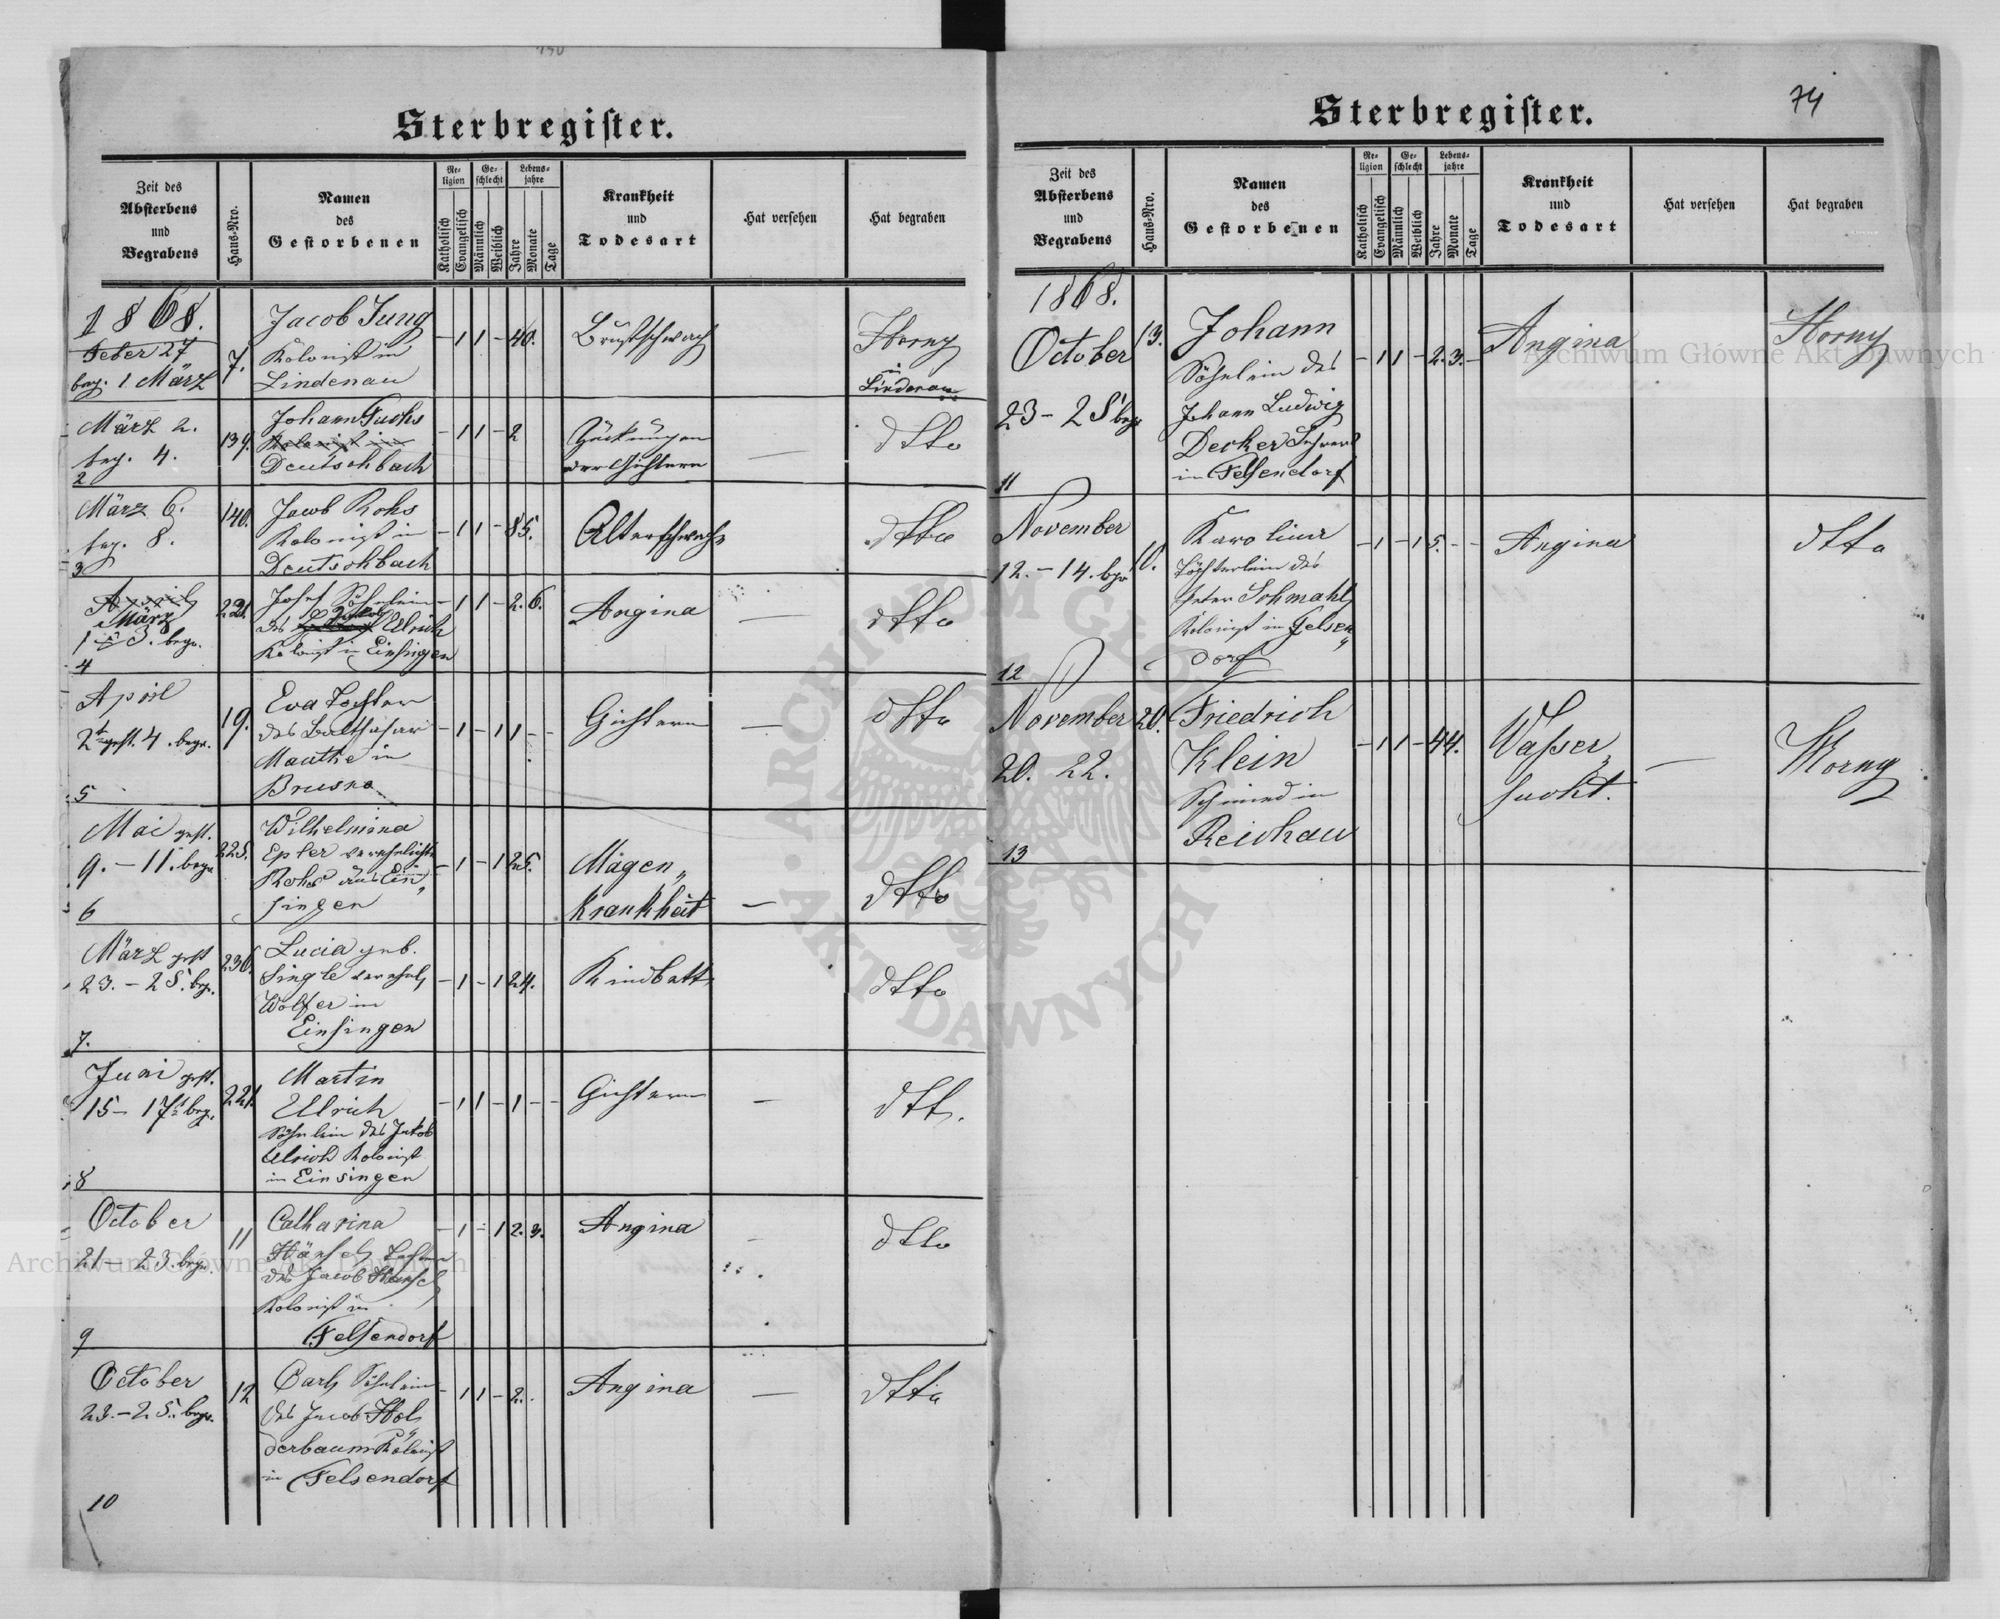 Sterbregister.
Zeit des Absterbens und Begrabens
Haus-Nro.
Namen des Gestorbenen
Religion
Katholisch
Evangelisch
Geschlecht
Männlich
Weiblich
Lebensjahre
Jahre
Monate
Tage
Krankheit und Todesart
Hat versehen
Hat begraben
1868.
Feber 27
beg. 1 März
7.
Jacob Jung
Kolonist in
Lindenau
- 1 1 - 40.
Brustschwach
Horny
in
Lindenau
März 2.
beg. 4.
2
139.
Johann Fuchs
Kolonist in
Deutschbach
- 1 1 - 2
Gichtern
dtto
März 6.
beg. 8.
3
140.
Jacob Rohs
Kolonist in
Deutschbach
- 1 1 - 85.
Altersschwach
dtto
April
März
4
221.
Josef Söhnlein
des Jakob Ullrich
Kolonist in Einsingen
- 1 1 - 2. 6.
Angina
dtto
April
2t gest. 4. begr.
5
19.
Eva Tochter
des Balthasar
Manthe in
Brusno
- 1 - 1 1 - -
Gichtern
dtto
Mai gest.
9. - 11. begr.
6
225.
Wilhelmina
Epler verehelichte
Rohs aus Ein„
singen
- 1 - 1 25.
Magen„
krankheit
dtto
März gest
23. - 25. beg.
7.
236.
Lucia geb.
Single verehel.
Wolfer in
Einsingen
- 1 - 1 24.
Kindbett
dtto
Juni gest.
15 - 17t beg.
8
221.
Martin
Ullrich
Söhnlein des Jakob
Ulrich Kolonist
in Einsingen
- 1 1 - 1 - -
Gichtern
dtto
October
21 - 23. begr.
9
11
Catharina
Hänsel Tochter
des Jacob Hänsel
Kolonist in
Felsendorf
- 1 - 1 2. 3.
Angina
dtto
October
23. - 25. begr.
10
12
Carl Söhnlein
des Jacob Hol„
derbaum Kolonist
in Felsendorf
- 1 1 - 2.
Angina
dtto
Sterbregister.
74
Zeit des Absterbens und Begrabens
Haus-Nro.
Namen des Gestorbenen
Religion
Katholisch
Evangelisch
Geschlecht
Männlich
Weiblich
Lebensjahre
Jahre
Monate
Tage
Krankheit und Todesart
Hat versehen
Hat begraben
1868.
October
23 - 25t begr
11
13.
Johann
Söhnlein des
Johann Ludwig
Decker Lehrer
in Felsendorf
- 1 1 - 2. 3. -
Angina
Horny
November
12. - 14. begr
12
10.
Karoline
Töchterlein des
Peter Schmahl
Kolonist in Felsen„
dorf
- 1 - 1 5. - -
Angina
dtto
November
20. 22.
13
20.
Friedrich
Klein
Schmied in
Reichau
- 1 1 - 44.
Wasser„
sucht.
Horny
Archiwum Główne Akt Dawnych
Archiwum Główne Akt Dawnych
ARCHIWUM GŁÓWNE AKT DAWNYCH